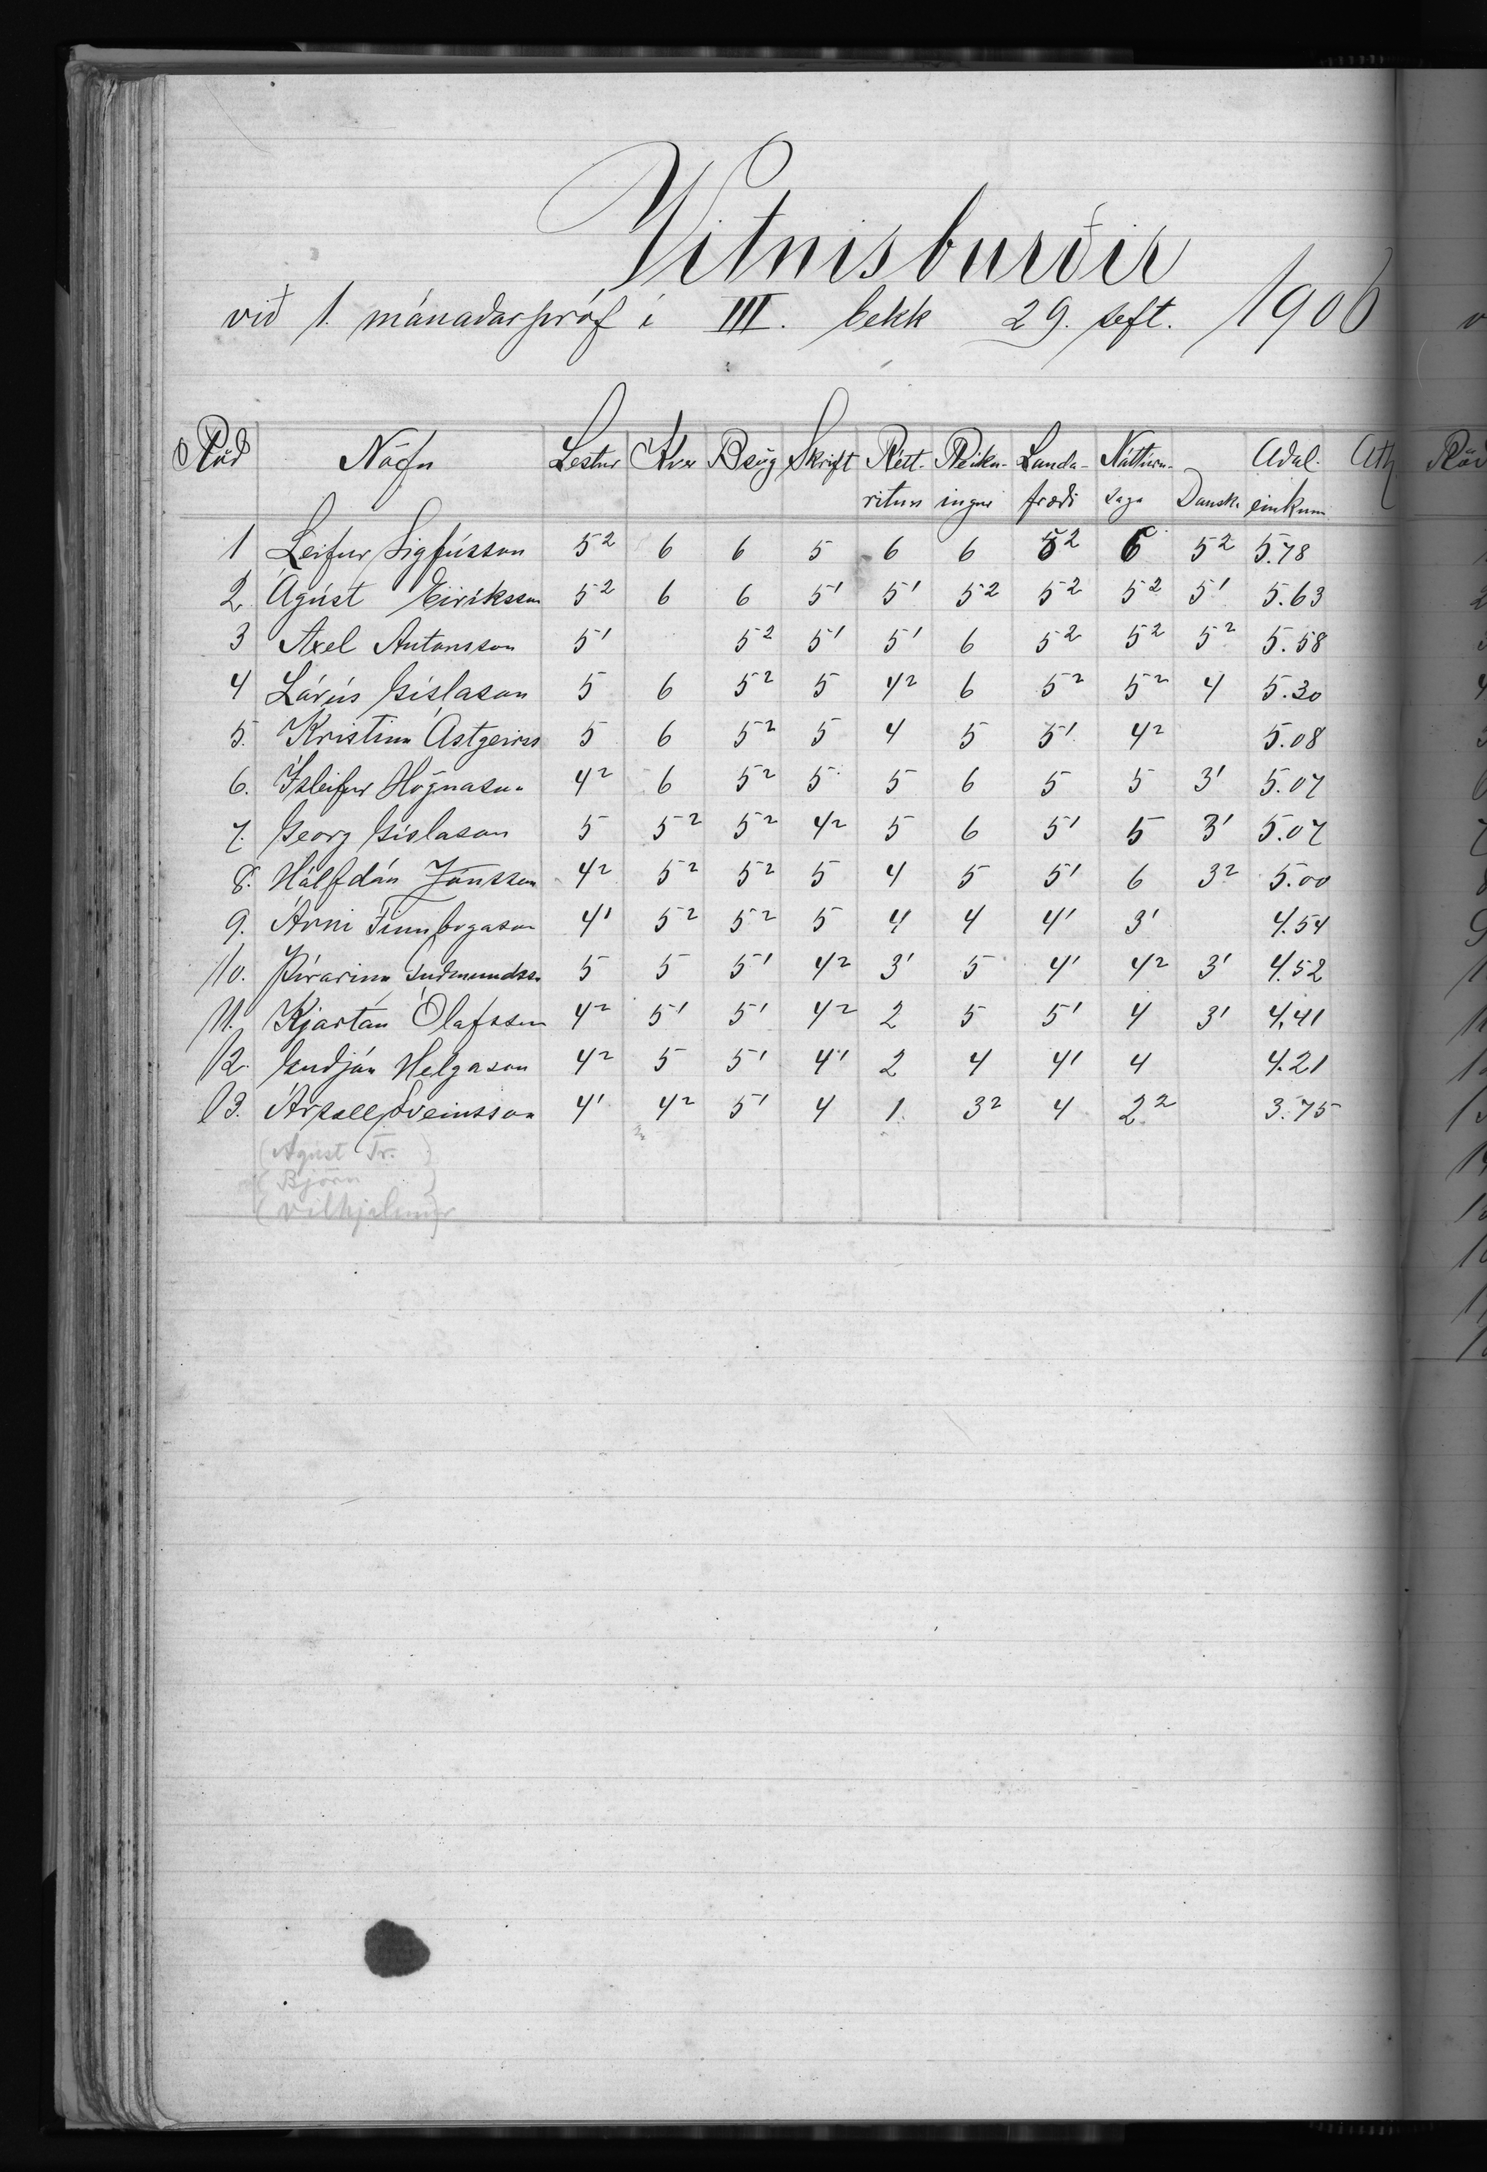 Vitnisburðir
við 1. mánaðarpróf í III. bekk 29. sept. 1906
Röð Nöfn Lestur Kver Bsög Skrift Rétt- Reikn- Landa- Náttúru- Aðal- Ath
ritun ingur fræði saga Danska einkunn
1 Leifur Sigfússon 5² 6 6 5 6 6 5² 6 5² 5.78
2. Ágúst Eiríksson 5² 6 6 5' 5' 5² 5² 5² 5' 5.63
3 Axel Antonsson 5' 5² 5' 5' 6 5² 5² 5² 5.58
4 Lárus Gíslason 5 6 5² 5 4² 6 5² 5² 4 5.30
5. Kristinn Ástgeirss 5 6 5² 5 4 5 5' 4² 5.08
6. Ísleifur Högnason 4² 6 5² 5 5 6 5 5 3' 5.07
7. Georg Gíslason 5 5² 5² 4² 5 6 5' 5 3' 5.07
8. Hálfdán Jónsson 4² 5² 5² 5 4 5 5' 6 3² 5.00
9. Árni Finnbogason 4' 5² 5² 5 4 4 4' 3' 4.54
10. Þórarinn Guðmundss. 5 5 5' 4² 3' 5 4' 4² 3' 4.52
11. Kjartan Ólafsson 4² 5' 5' 4² 2 5 5' 4 3' 4.41
12. Guðjón Helgason 4² 5 5' 4' 2 4 4' 4 4.21
13. Ársæll Sveinsson 4' 4² 5' 4 1. 3² 4 2² 3.75
(Ágúst Fr. )
( Björn )
(Vilhjálmur)